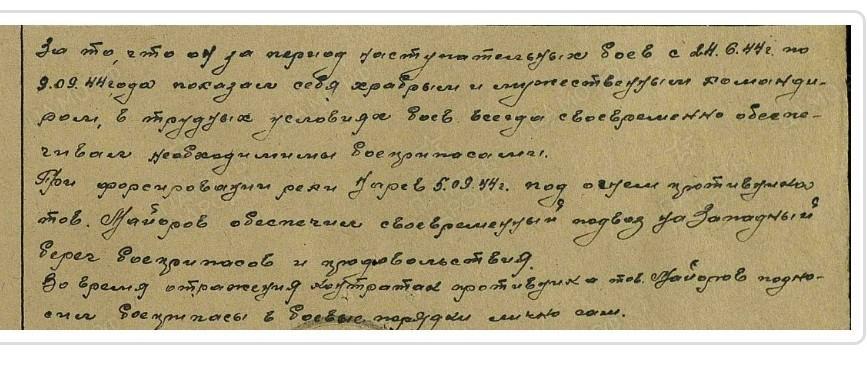 За то, что он за период наступательных боев с 24.6.44г. по
9.09.44 года показал себя храбрым и мужественным команди-
ром, в трудных условиях боев всегда своевременно обеспе-
чивал необходимыми боеприпасами.
При форсировании реки Нарев 5.09.44г. под огнем противника
тов. Майоров обеспечил своевременный подвоз на Западный
берег боеприпасов и продовольствия.
Во время отражения контратак противника тов. Майоров подно-
сил боеприпасы в боевые порядки лично сам.